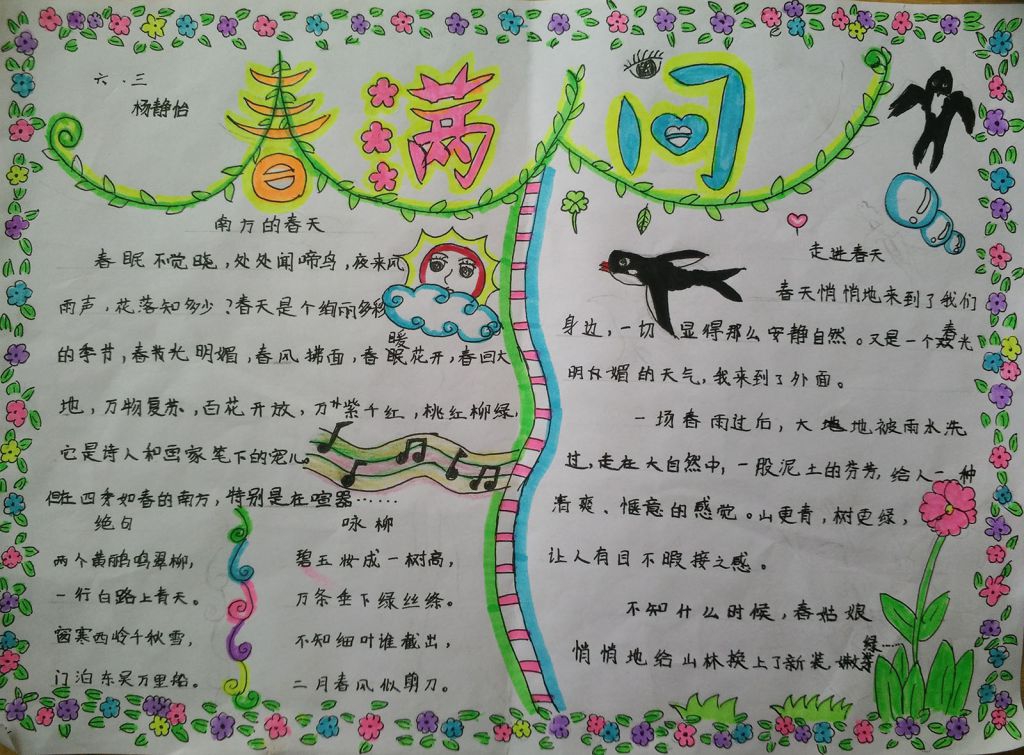 六.三
杨静怡
春满人间
南方的春天
春眠不觉晓，处处闻啼鸟，夜来风
雨声，花落知多少？春天是个绚丽多彩
的季节，春光明媚，春风拂面，春暖花开，春回大
地，万物复苏，百花开放，万紫千红，桃红柳绿，
它是诗人和画家笔下的宠儿。
但在四季如春的南方，特别是在喧嚣……
绝句
两个黄鹂鸣翠柳，
一行白路上青天。
窗寒西岭千秋雪，
门泊东吴万里船。
咏柳
碧玉妆成一树高，
万条垂下绿丝绦。
不知细叶谁裁出，
二月春风似剪刀。
走进春天
春天悄悄地来到了我们
身边，一切显得那么安静自然。又是一个春光
明媚的天气，我来到了外面。
一场春雨过后，大地被雨水洗
过，走在大自然中，一股泥土的芬芳，给人一种
清爽、惬意的感觉。山更青，树更绿，
让人有目不暇接之感。
不知什么时候，春姑娘
悄悄地给山林换上了新装，嫩芽
绿……